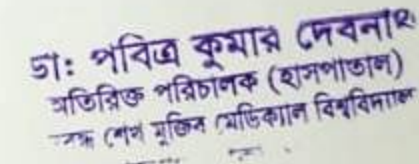 ডাঃ পবিত্র কুমার দেবনাথ
অতিরিক্ত পরিচালক (হাসপাতাল)
শেখ মুজিব মেডিক্যাল বিশ্ববিদ্যালয়